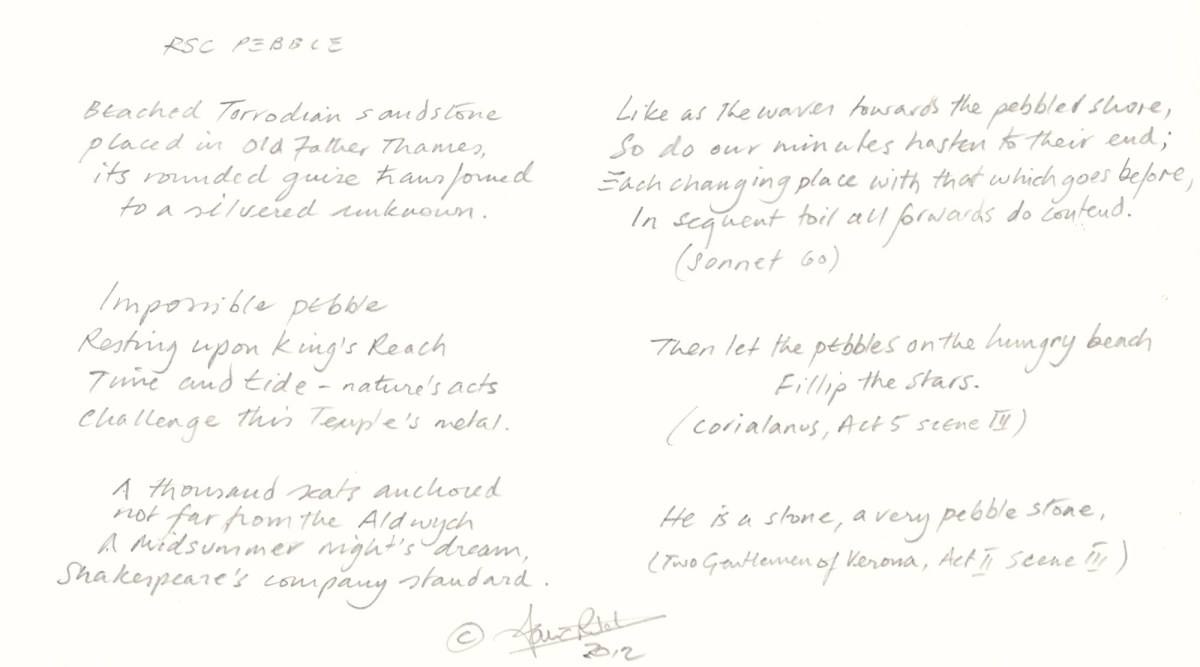 RSC PEBBLE
Beached Torrodian sandstone
placed in Old Father Thames,
its rounded guize transformed
to a silvered unknown.
Impossible pebble
Resting upon King's Reach
Time and tide - nature's acts
Challenge this Temple's metal.
A thousand seats anchored
not far from the Aldwych
A Midsummer night's dream,
Shakespeare's company standard.
Like as the waves towards the pebbled shore,
So do our minutes hasten to their end;
Each changing place with that which goes before,
In sequent toil all forwards do contend.
(Sonnet 60)
Then let the pebbles on the hungry beach
Fillip the stars.
(Corialanus, Act 5 scene III)
He is a stone, a very pebble stone,
(Two Gentlemen of Verona, Act II scene III)
©
2012